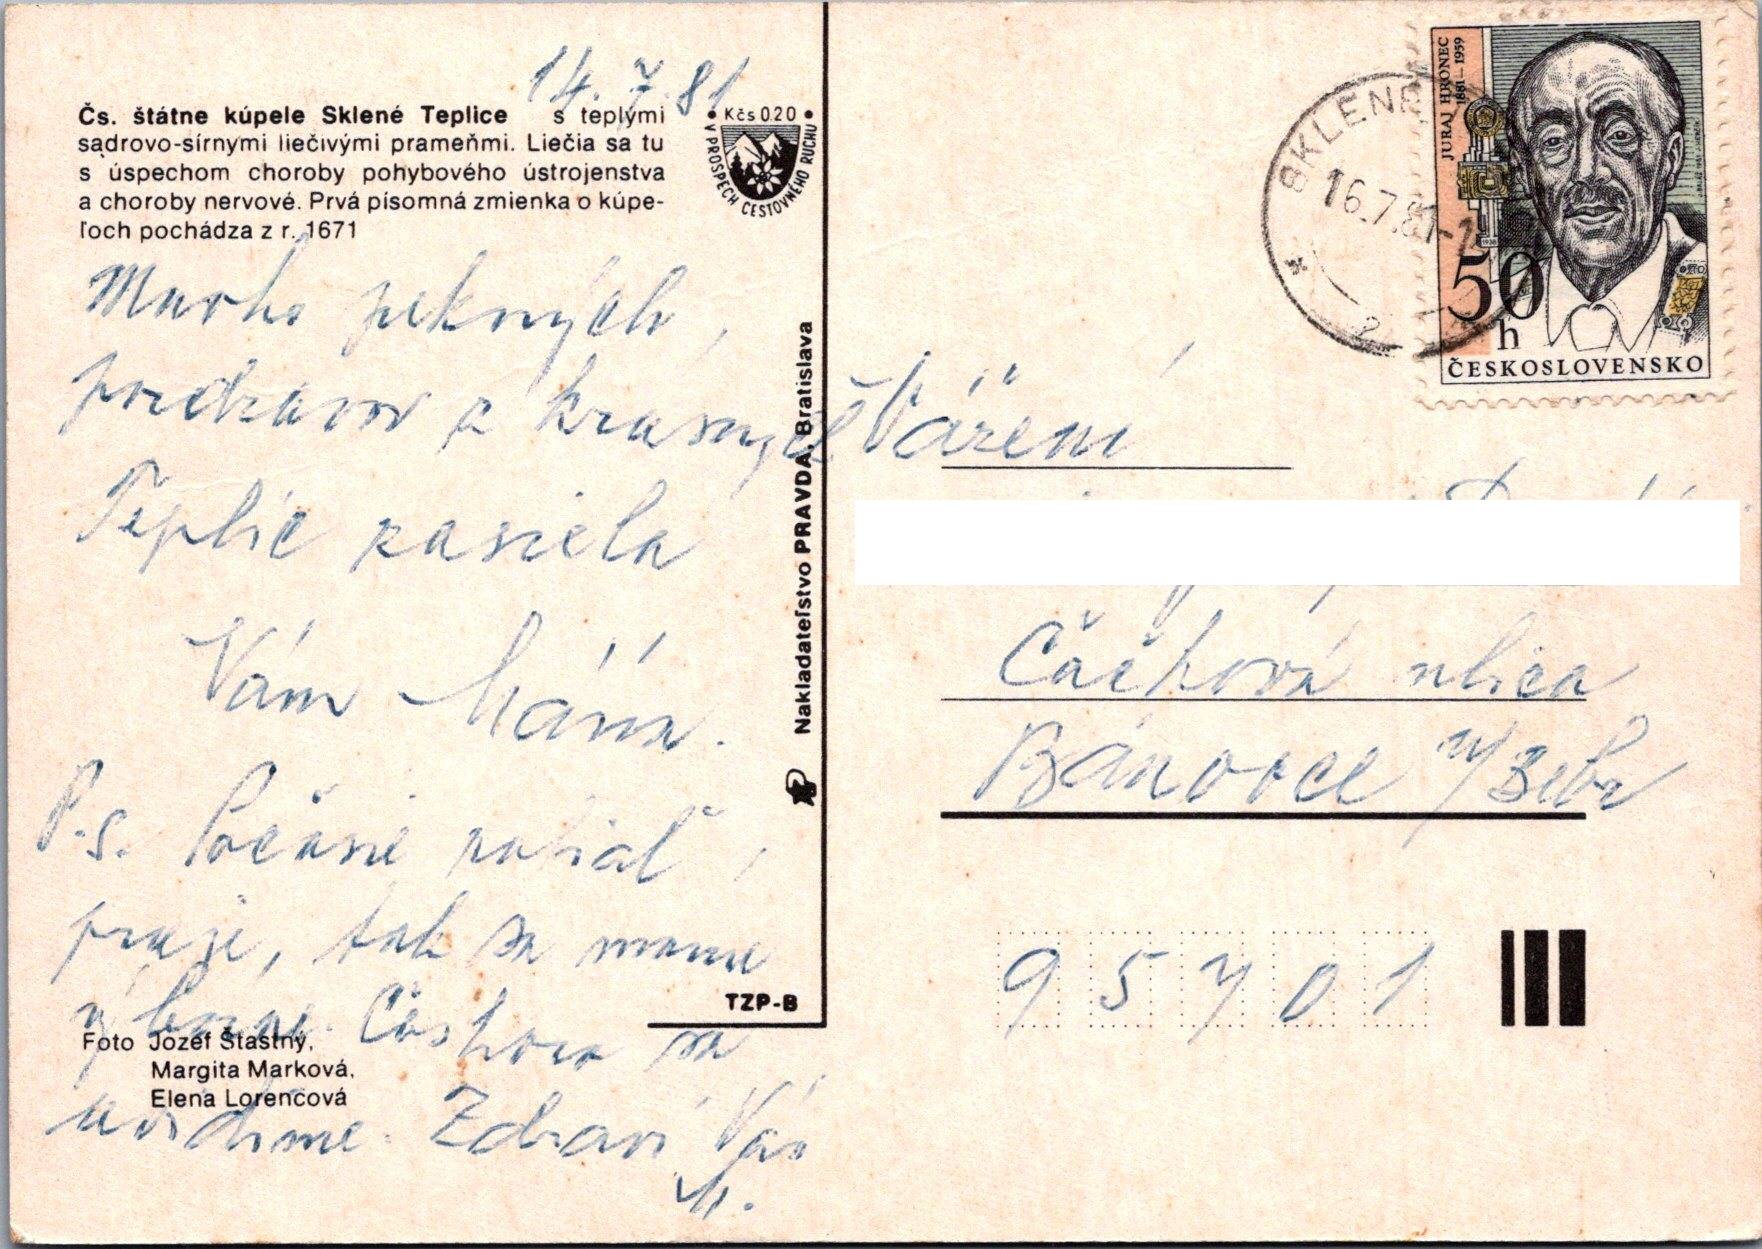 14.7.81
Čs. štátne kúpele Sklené Teplice s teplými
sadrovo-sírnymi liečivými prameňmi. Liečia sa tu
s úspechom choroby pohybového ústrojenstva
a choroby nervové. Prvá písomná zmienka o kúpe-
ľoch pochádza z r. 1671
• Kčs 0.20 •
V PROSPECH CESTOVNÉHO RUCHU
Mnoho pekných
pozdravov z krásnych
Teplíc zasiela
Vám
P.s. Počasie zatiaľ
praje, tak sa máme
výborne. Čoskoro sa
uvidíme. Zdraví Vás
M.
Foto Jozef Šťastný,
Margita Marková,
Elena Lorencová
TZP-B
Nakladateľstvo PRAVDA, Bratislava
SKLENÉ
16.7.81
JURAJ HRONEC
1881–1959
1938
50
h
ČESKOSLOVENSKO
Vážení
ulica
Bánovce n/Bebr
95701